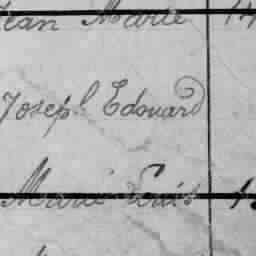 Jean Marie 14
Joseph Edouard
Marie Louis